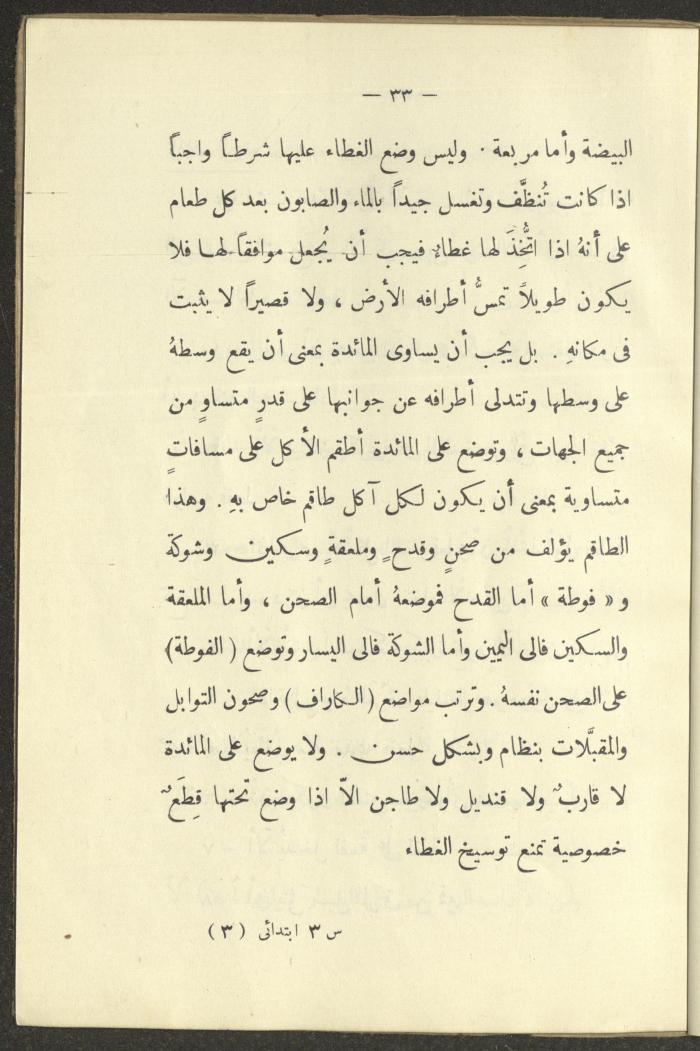 — ٣٣ —
البيضة وأما مربعة . وليس وضع الغطاء عليها شرطاً واجباً
اذا كانت تُنظَّف وتغسل جيداً بالماء والصابون بعد كل طعام
على أنهُ اذا اتُّخِذَ لها غطاءٌ فيجب أن يُجعل موافقاً لها فلا
يكون طويلاً تمسُّ أطرافه الأرض ، ولا قصيراً لا يثبت
فى مكانهِ . بل يجب أن يساوى المائدة بمعنى أن يقع وسطهُ
على وسطها وتتدلى أطرافه عن جوانبها على قدرٍ متساوٍ من
جميع الجهات ، وتوضع على المائدة أطقم الأكل على مسافاتٍ
متساوية بمعنى أن يكون لكل آكل طاقم خاص بهِ . وهذا
الطاقم يؤلف من صحنٍ وقدحٍ وملعقةٍ وسكين وشوكة
و « فوطة » أما القدح فموضعهُ أمام الصحن ، وأما الملعقة
والسكين فالى اليمين وأما الشوكة فالى اليسار وتوضع ( الفوطة )
على الصحن نفسهُ . وترتب مواضع ( الكاراف ) وصحون التوابل
والمقبَّلات بنظام وبشكل حسن . ولا يوضع على المائدة
لا قاربٌ ولا قنديل ولا طاجن الاّ اذا وضع تحتها قِطَعٌ
خصوصية تمنع توسيخ الغطاء
س ٣ ابتدائى ( ٣ )